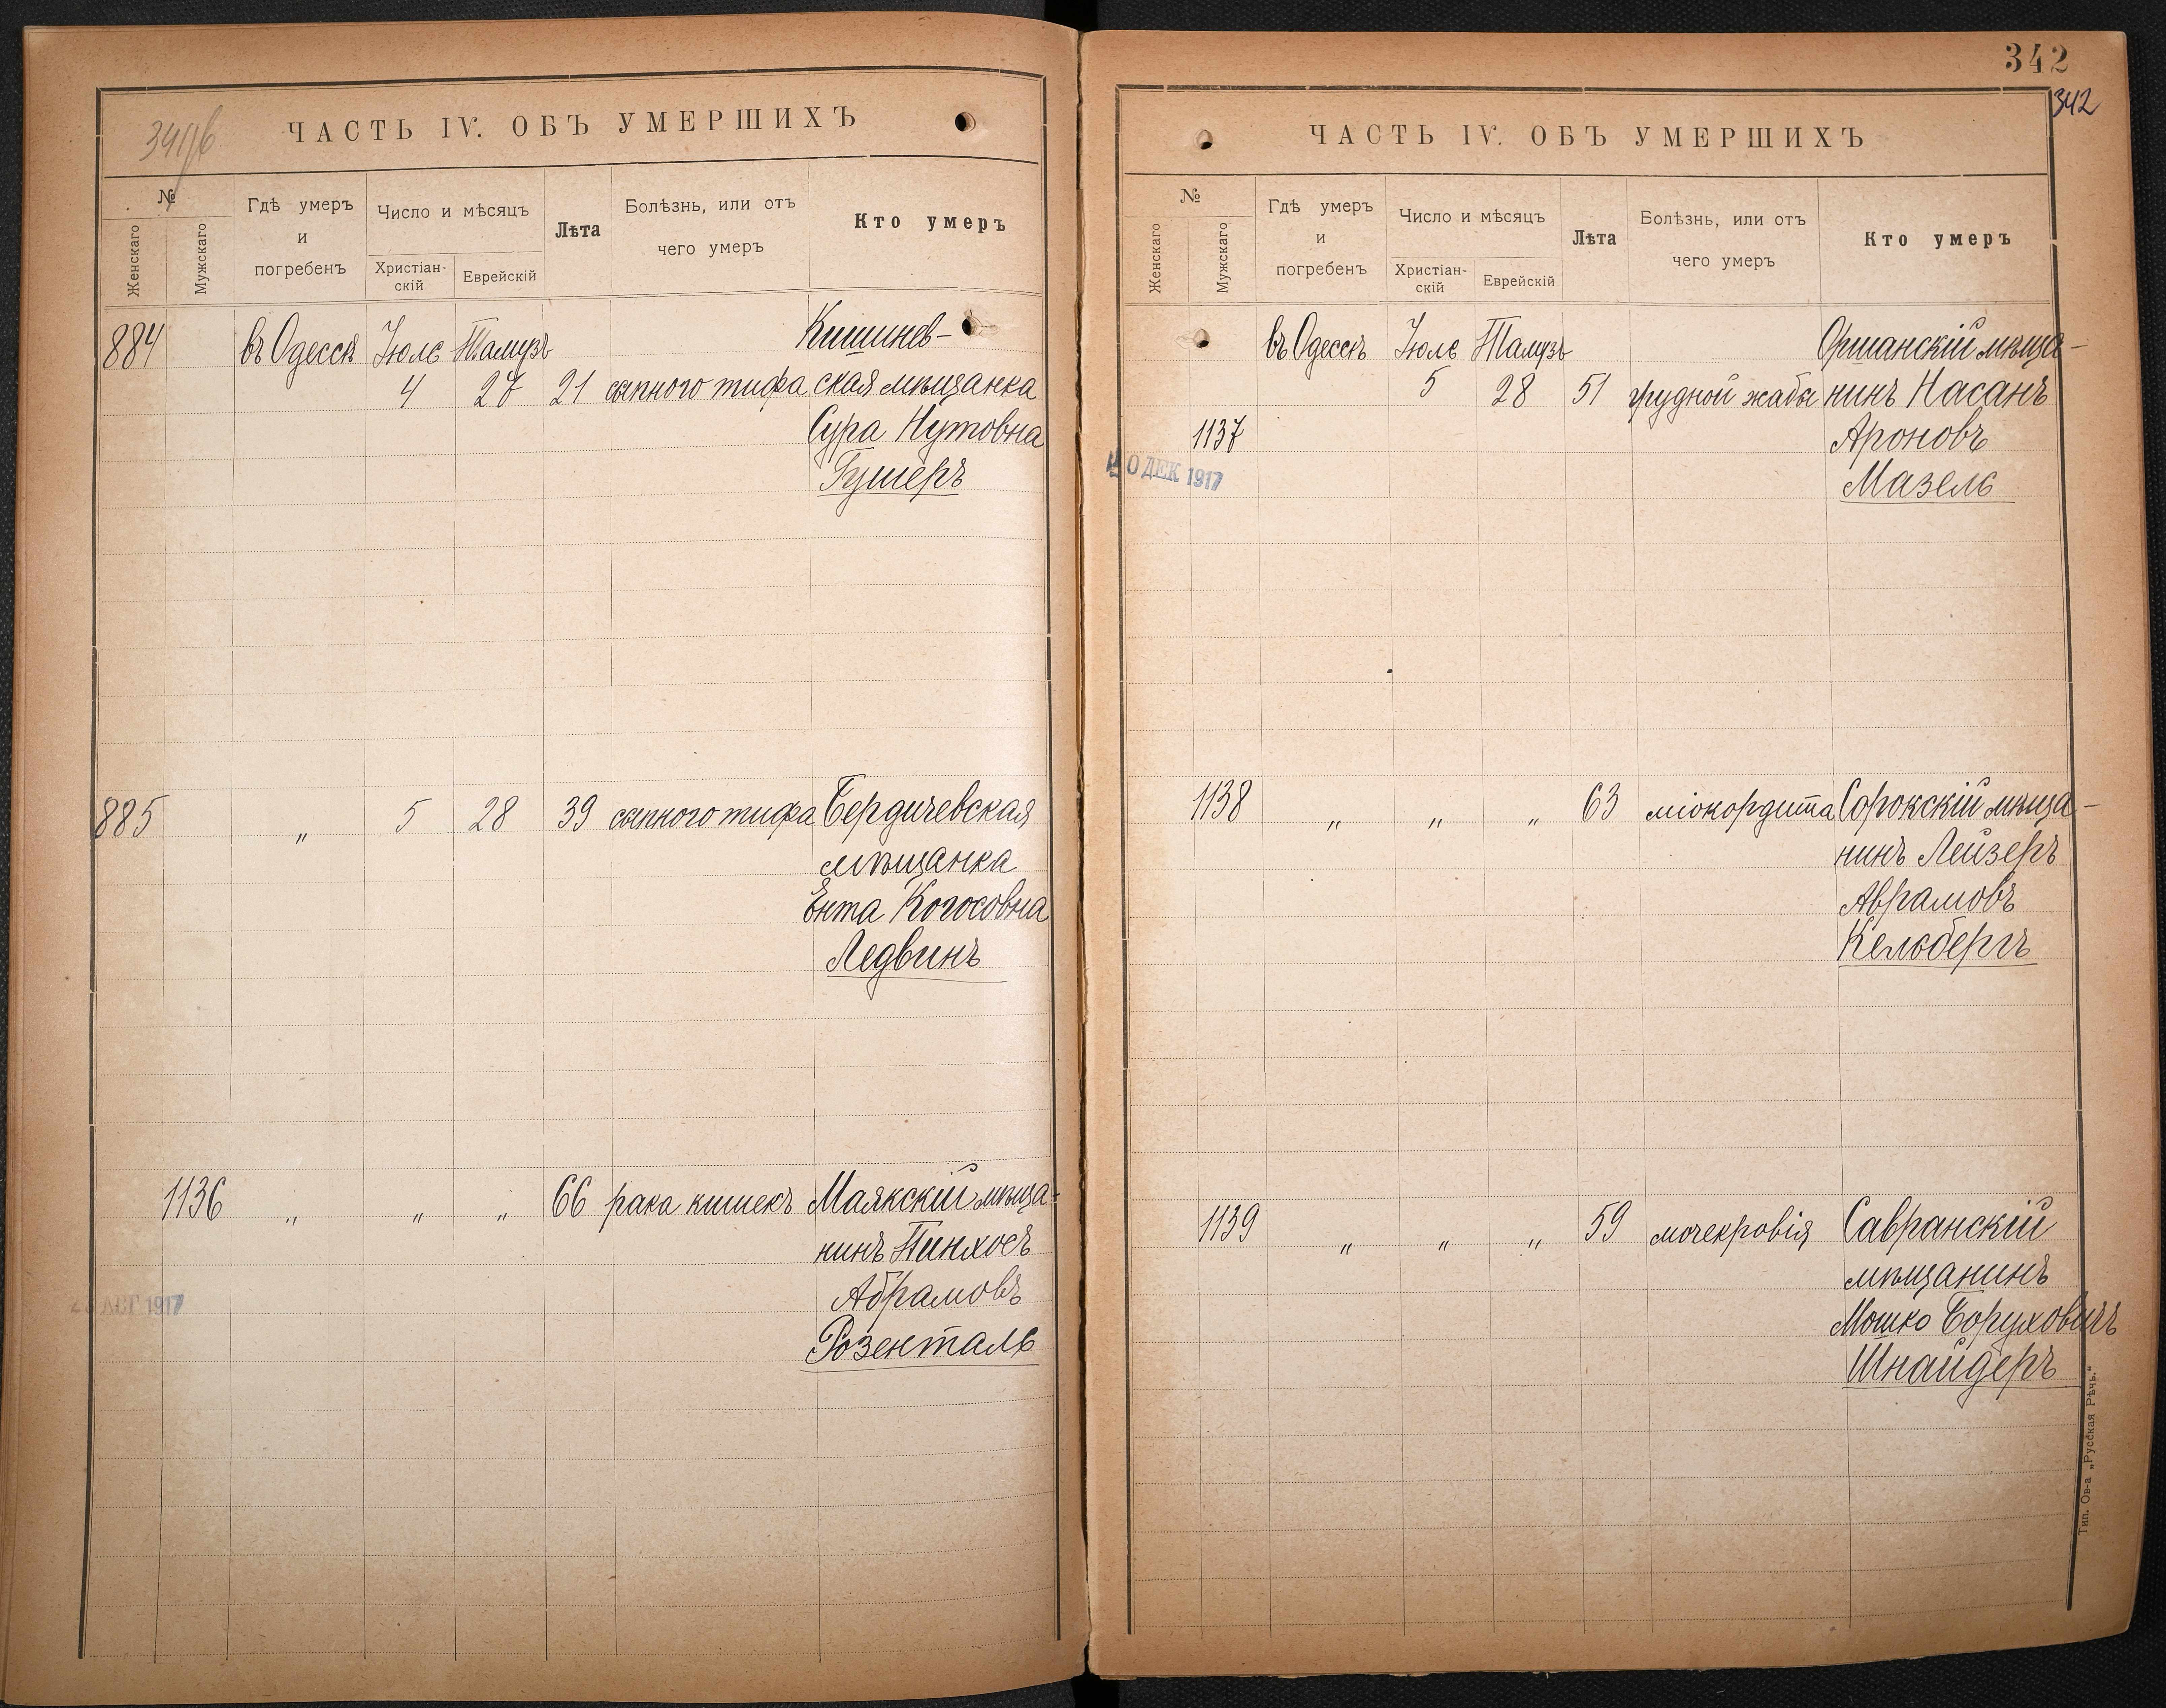 ЧАСТЬ IV. ОБЪ УМЕРШИХЪ
№
Женскаго
Мужскаго
Гдѣ умеръ
и
погребенъ
Число и мѣсяцъ
Христіан-
скій
Еврейскій
Лѣта
Болѣзнь, или отъ
чего умеръ
Кто умеръ
884 въ Одессѣ Іюль Тамузъ Кишинев-
4 27 21 сыпного тифа ская мѣщанка
Сура Нутовна
Гушеръ
885 " 5 28 39 сыпного тифа Бердичевская
мѣщанка
Ента Когосовна
Ледвинъ
1136 " " " 66 рака кишекъ Маякскій мѣща-
нинъ Пинхосъ
Абрамовъ
Розенталь
1917
342
342
ЧАСТЬ IV. ОБЪ УМЕРШИХЪ
№
Женскаго
Мужскаго
Гдѣ умеръ
и
погребенъ
Число и мѣсяцъ
Христіан-
скій
Еврейскій
Лѣта
Болѣзнь, или отъ
чего умеръ
Кто умеръ
въ Одессѣ Іюль Тамузъ Оршанскій мѣща-
5 28 51 грудной жабы нинъ Насанъ
1137 Ароновъ
ДЕК 1917
Мазель
1138 " " " 63 міокордита Сорокскій мѣща-
нинъ Лейзеръ
Аврамовъ
Кельбергъ
1139 " " " 59 мочекровія Савранскій
мѣщанинъ
Мошко Боруховичъ
Шнайдеръ
Тип. Ов-а „Русская Рѣчь."